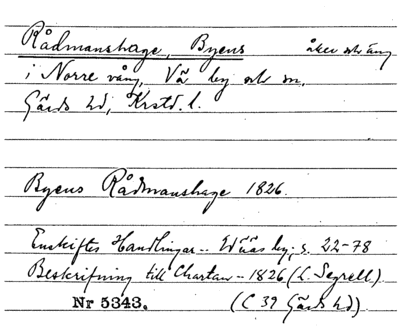 Rådmanshage, Byens åker och äng
i Norre vång, Vä by och sn,
Gärds hd, Krstd. l.
Byens Rådmanshage 1826.
Enskiftes Handlingar by, s. 22-78
Beskrifning till Chartan 1826 (L. Segrell).
Nr 5343. (C 39 Gärds hd).